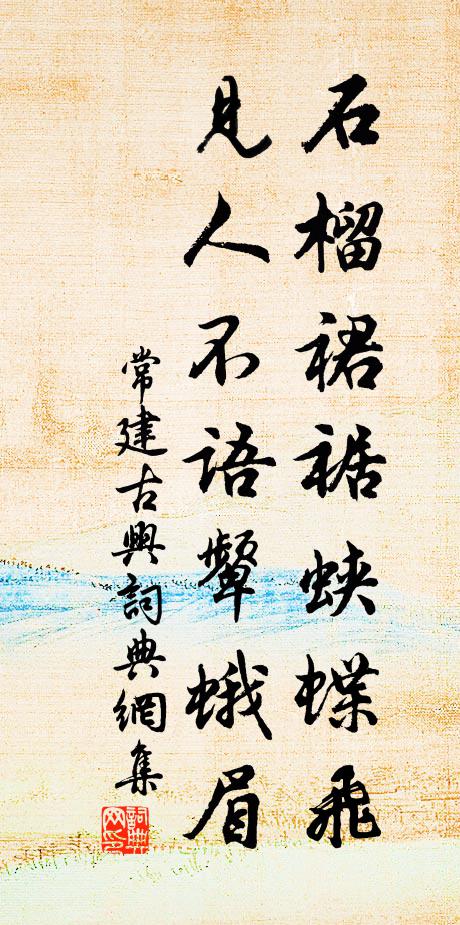 石榴裙裾蛺蝶飛
見人不語顰蛾眉
常建古興詞典網集
詞典網印